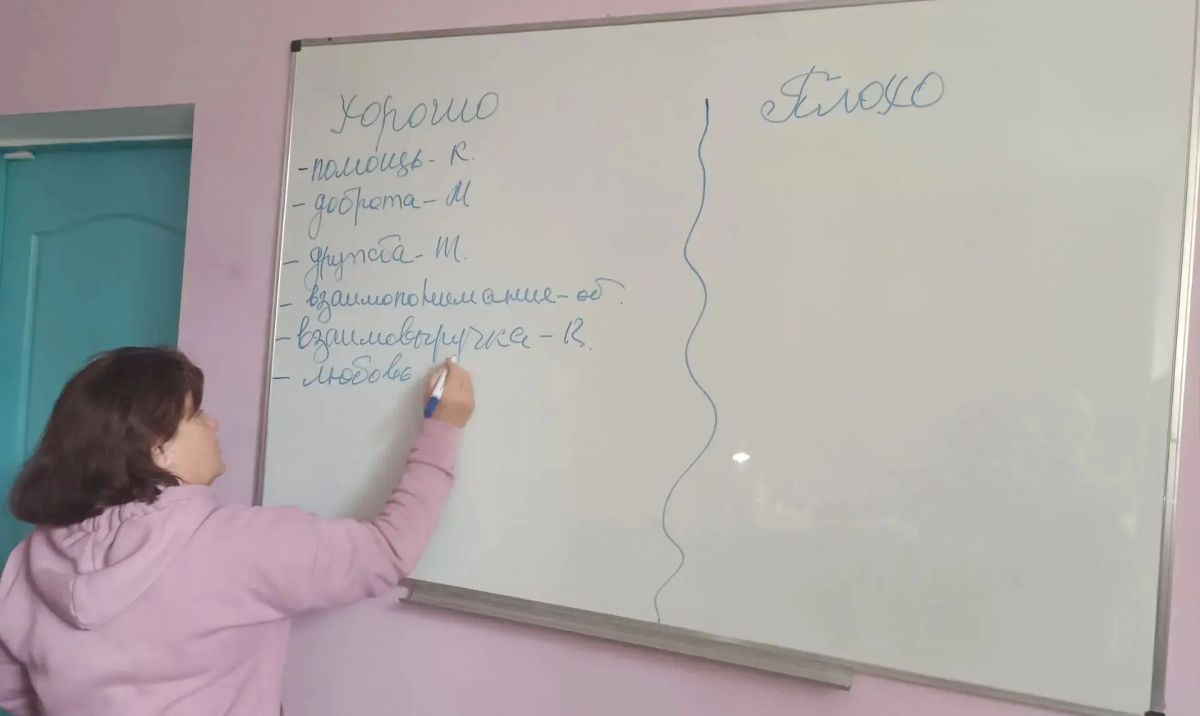 Хорошо
Плохо
- помощь - К.
- доброта - М
- дружба - Т.
- взаимопонимание - об.
- взаимовыручка - К.
- любовь